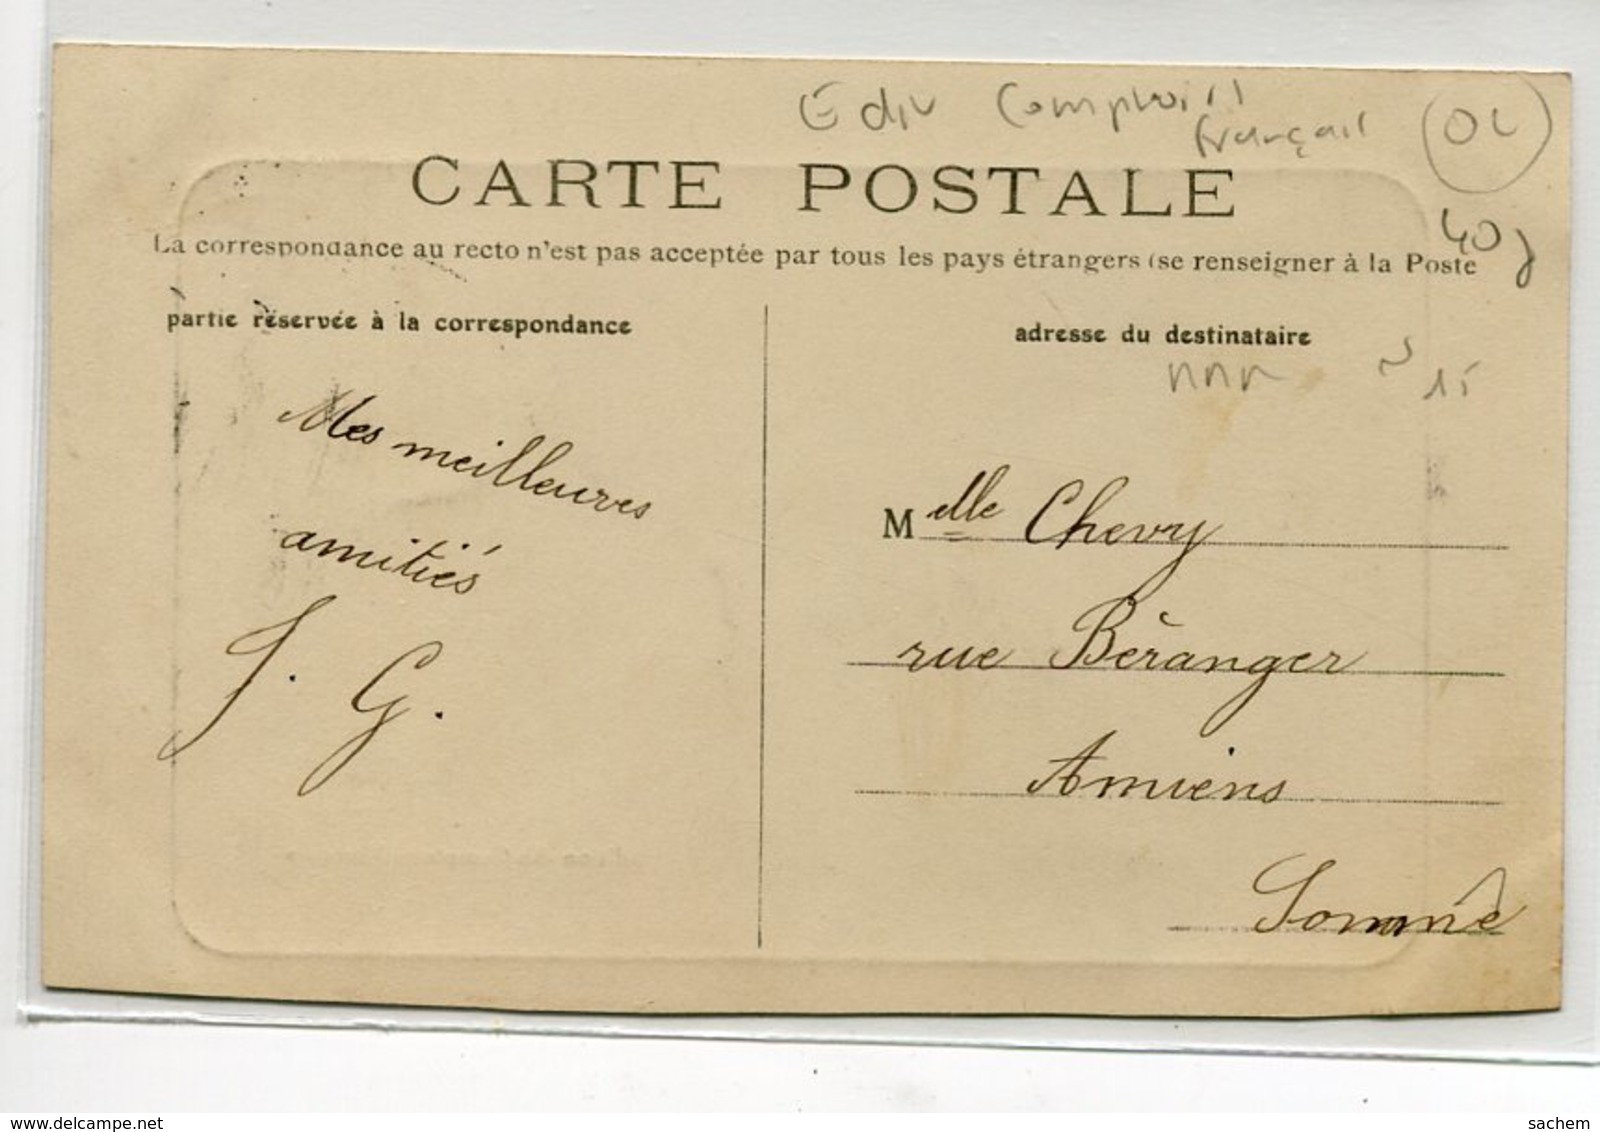 Edit Comptoir
français
OL
CARTE POSTALE
40
La correspondance au recto n'est pas acceptée par tous les pays étrangers (se renseigner à la Poste
partie réservée à la correspondance
adresse du destinataire
15
Mes meilleures
amitiés
J. G.
Melle Chevry
rue Béranger
Amiens
Somme
delcampe.net
sachem